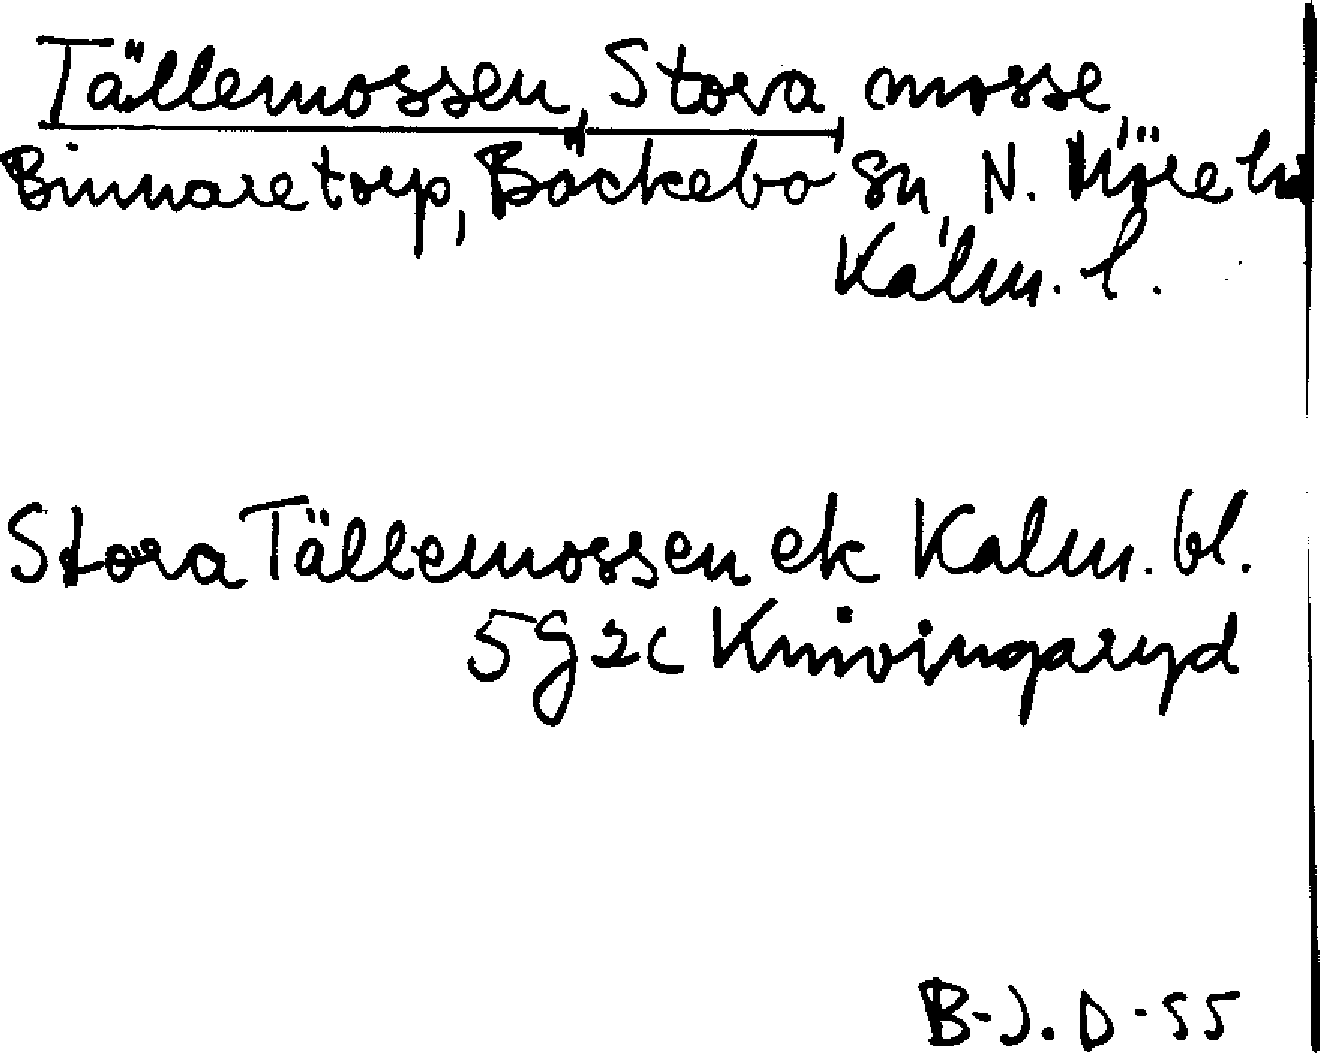 Tällemossen, Stora mosse,
Binnaretorp, Bäckebo sn, N. Möre hd
Kalm. l.
Stora Tällemossen ek Kalm. bl.
5g 2c Knivingaryd
B-J. D-55